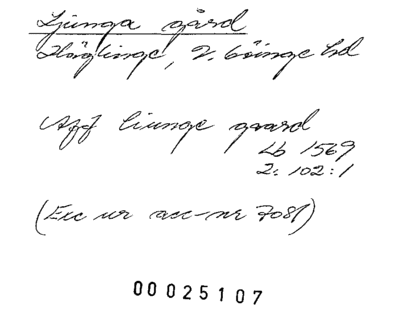 Ljunga gård
Häglinge, V. Göinge hd
Aff liunge gaard
Lb 1569
2: 102:1
(Exc ur acc-nr 7081)
00025107